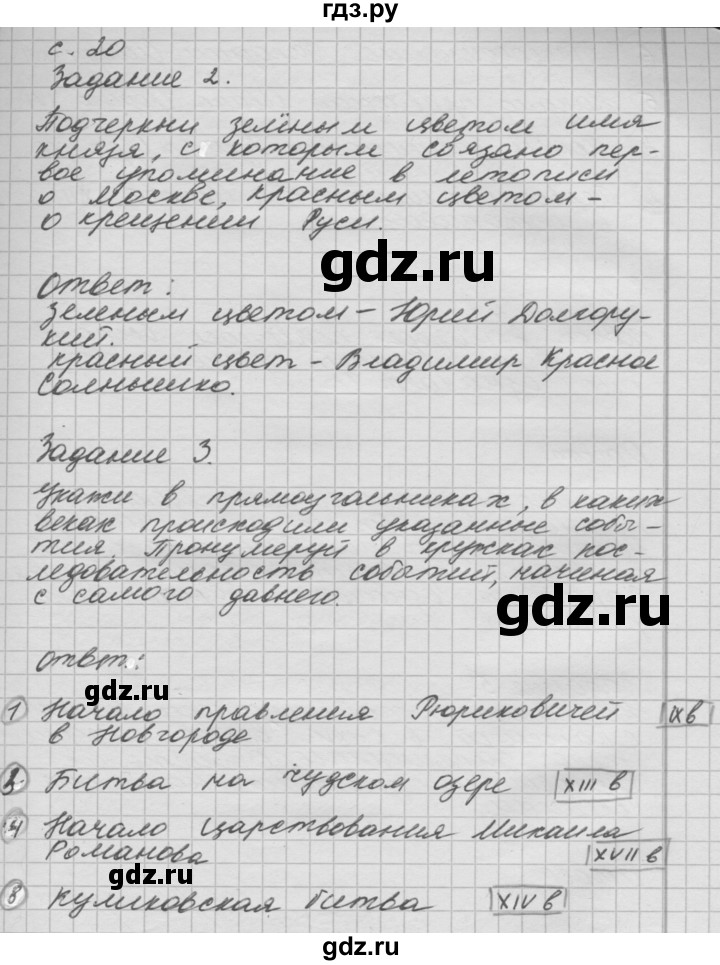 гдз.ру
с. 20
Задание 2.
Подчеркни зелёным цветом имя
князя, с которым связано пер-
вое упоминание в летописи
о Москве, красным цветом -
о крещении Руси.
gdz.ru
ответ:
зеленым цветом - Юрий Долгору-
кий.
красный цвет - Владимир Красное
Солнышко.
Задание 3.
Укажи в прямоугольниках, в каких
веках происходили указанные собы-
тия. Пронумеруй в кружках пос-
ледовательность событий, начиная
с самого давнего.
gdz.ru
ответ:
gdz.ru
1 Начало правления Рюриковичей IX в
в Новгороде
2 Битва на Чудском озере XIII в
4 Начало царствования Михаила
Романова XVII в
gdz.ru
8 Куликовская битва XIV в
gdz.ru